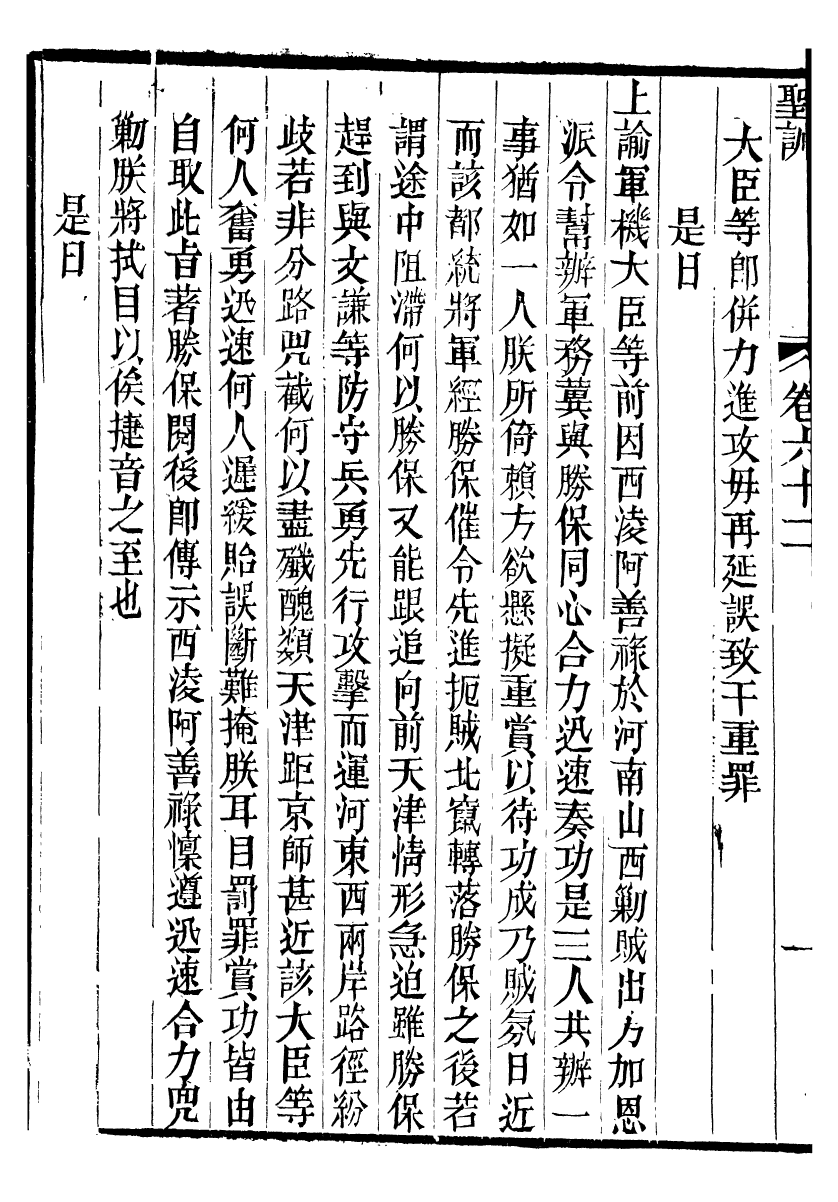 聖訓 卷六十二 一
大臣等卽併力進攻毋再延誤致干重罪
是日
上諭軍機大臣等前因西淩阿善祿於河南山西勦賊出力加恩
派令幫辦軍務冀與勝保同心合力迅速奏功是三人共辦一
事猶如一人朕所倚賴方欲懸擬重賞以待功成乃賊氛日近
而該都統將軍經勝保催令先進扼賊北竄轉落勝保之後若
謂途中阻滯何以勝保又能跟追向前天津情形急迫雖勝保
趕到與文謙等防守兵勇先行攻擊而運河東西兩岸路徑紛
歧若非分路兜截何以盡殲醜類天津距京師甚近該大臣等
何人奮勇迅速何人遲緩貽誤斷難掩朕耳目罰罪賞功皆由
自取此旨著勝保閱後卽傳示西淩阿善祿懍遵迅速合力兜
勦朕將拭目以俟捷音之至也
是日